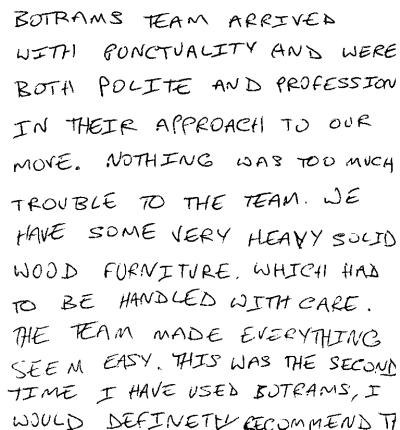 BOTRAMS TEAM ARRIVED
WITH PONCTUALITY AND WERE
BOTH POLITE AND PROFESSION
IN THEIR APPROACH TO OUR
MOVE. NOTHING WAS TOO MUCH
TROUBLE TO THE TEAM. WE
HAVE SOME VERY HEAVY SOLID
WOOD FURNITURE. WHICH HAD
TO BE HANDLED WITH CARE.
THE TEAM MADE EVERYTHING
SEEM EASY. THIS WAS THE SECOND
TIME I HAVE USED BOTRAMS, I
WOULD DEFINETLY RECOMMEND T